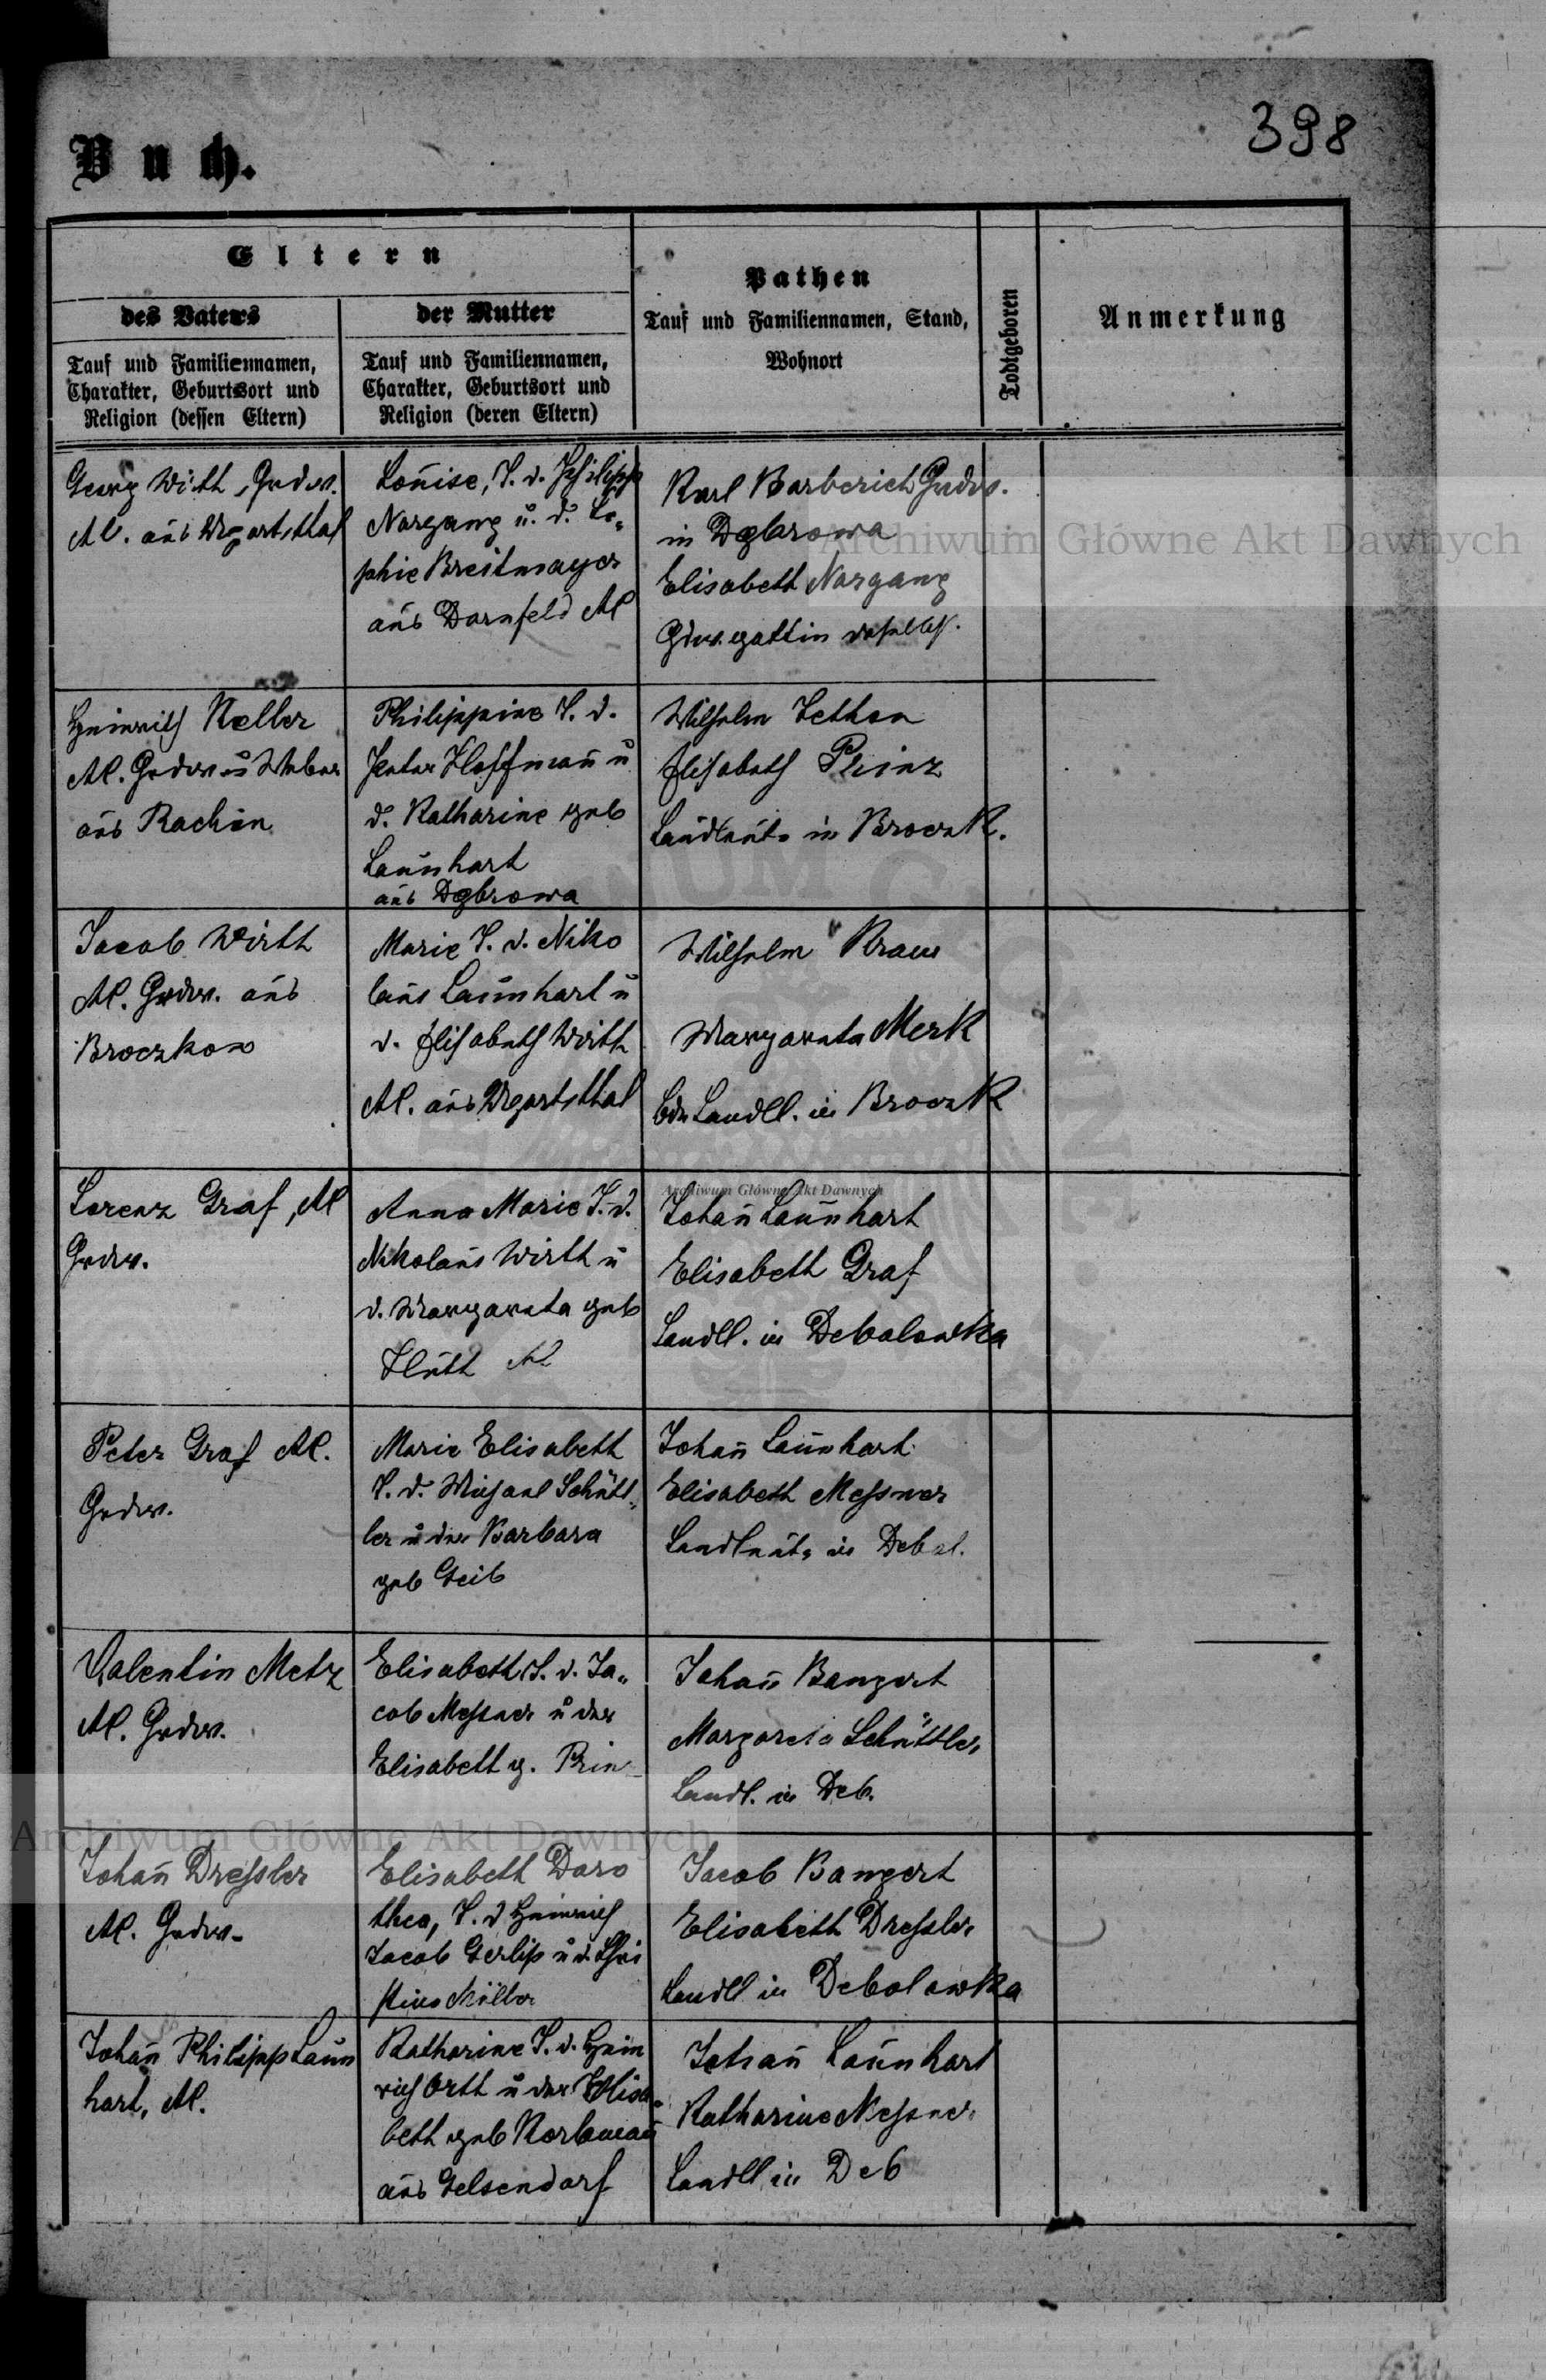 398
Buch.
Eltern
des Vaters
der Mutter
Pathen
Tauf und Familiennamen, Stand,
Wohnort
Todtgeboren
Anmerkung
Tauf und Familiennamen,
Charakter, Geburtsort und
Religion (dessen Eltern)
Tauf und Familiennamen,
Charakter, Geburtsort und
Religion (deren Eltern)
Georg Wirth, Grdw.
AC. aus Ugartsthal
Louise, T. d. Philipp
Nargang u. d. So-
phie Breitmayer
aus Dornfeld AC
Karl Barberich Grdw.
in Dąbrowa
Elisabeth Nargang
Grdw. gattin daselbst.
Heinrich Keller
AC. Grdw u Weber
aus Rachin
Philippine T. d.
Peter Hoffmann u
d. Katharine geb
Launhart
aus Dąbrowa
Wilhelm
Elisabeth Prinz
Landleute in Broczk.
Jacob Wirth
AC. Grdw. aus
Broczkow
Marie T. d. Niko
laus Launhart u
d. Elisabeth Wirth
AC. aus Ugartsthal
Wilhelm Kraus
Margareta Merk
bde Landll. in Broczk
Lorenz Graf, AC
Grdw.
Anna Marie T. d.
Nikolaus Wirth u
d. Margareta geb
Huth AC
Johañ Launhart
Elisabeth Graf
Landll. in Debolowka
Peter Graf AC.
Grdw.
Marie Elisabeth
T. d. Michael Schütt-
ler u der Barbara
geb Geib
Johañ Launhart
Elisabeth Messner
Landleute in Debol.
Valentin Metz
AC. Grdw.
Elisabeth T. d. Ja-
cob Messner u der
Elisabeth g. Prinz
Johañ Bangert
Margareta Schüttler
Landl. in Deb.
Johañ Dressler
AC. Grdw.
Elisabeth Doro
thea, T. d Heinrich
Jacob Gerlip u d. Chri
stine Müller
Jacob Bangert
Elisabeth Dressler
Landll in Debolowka
Johañ Philipp Laun
hart, AC.
Katharine T. d. Hein
rich Orth u der Elisa-
beth geb
aus Gelsendorf
Johañ Launhart
Katharine Messner
Landll in Deb
Archiwum Główne Akt Dawnych
Archiwum Główne Akt Dawnych
Archiwum Główne Akt Dawnych